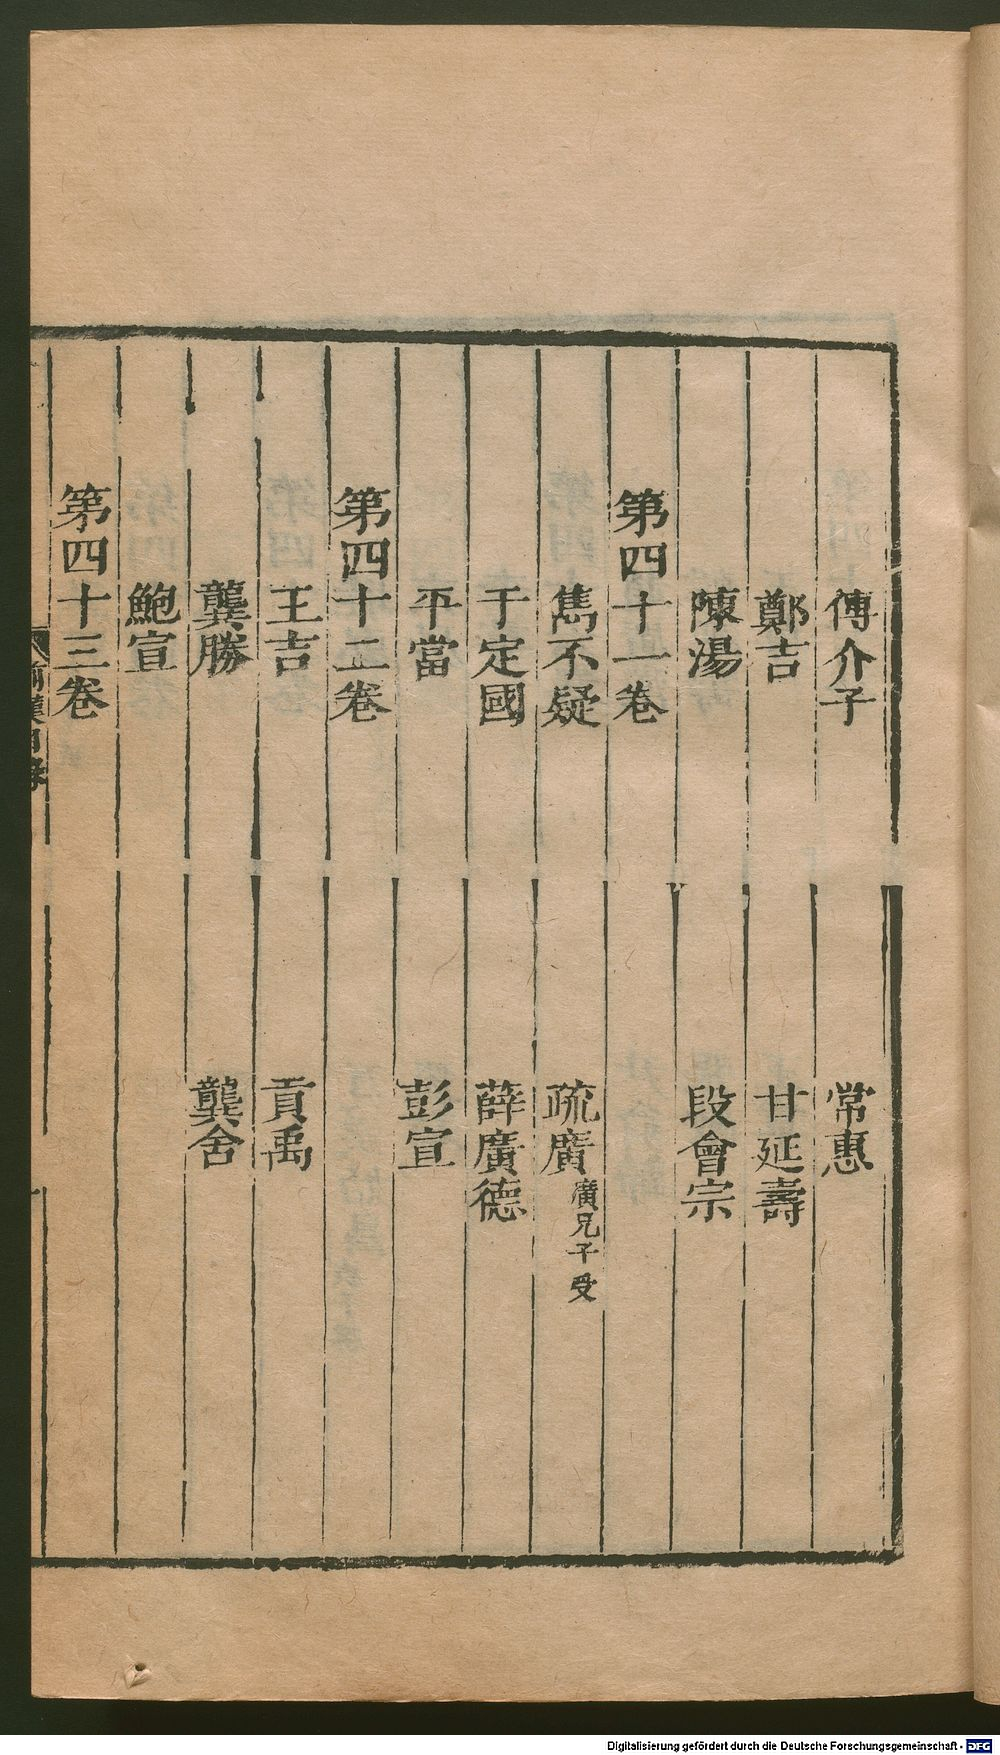 傅介子 常惠
鄭吉 甘延壽
陳湯 段會宗
第四十一卷
雋不疑 疏廣 廣兄子受
于定國 薛廣德
平當 彭宣
第四十二卷
王吉 貢禹
龔勝 龔舍
鮑宣
第四十三卷
前漢目錄
Digitalisierung gefördert durch die Deutsche Forschungsgemeinschaft - DFG